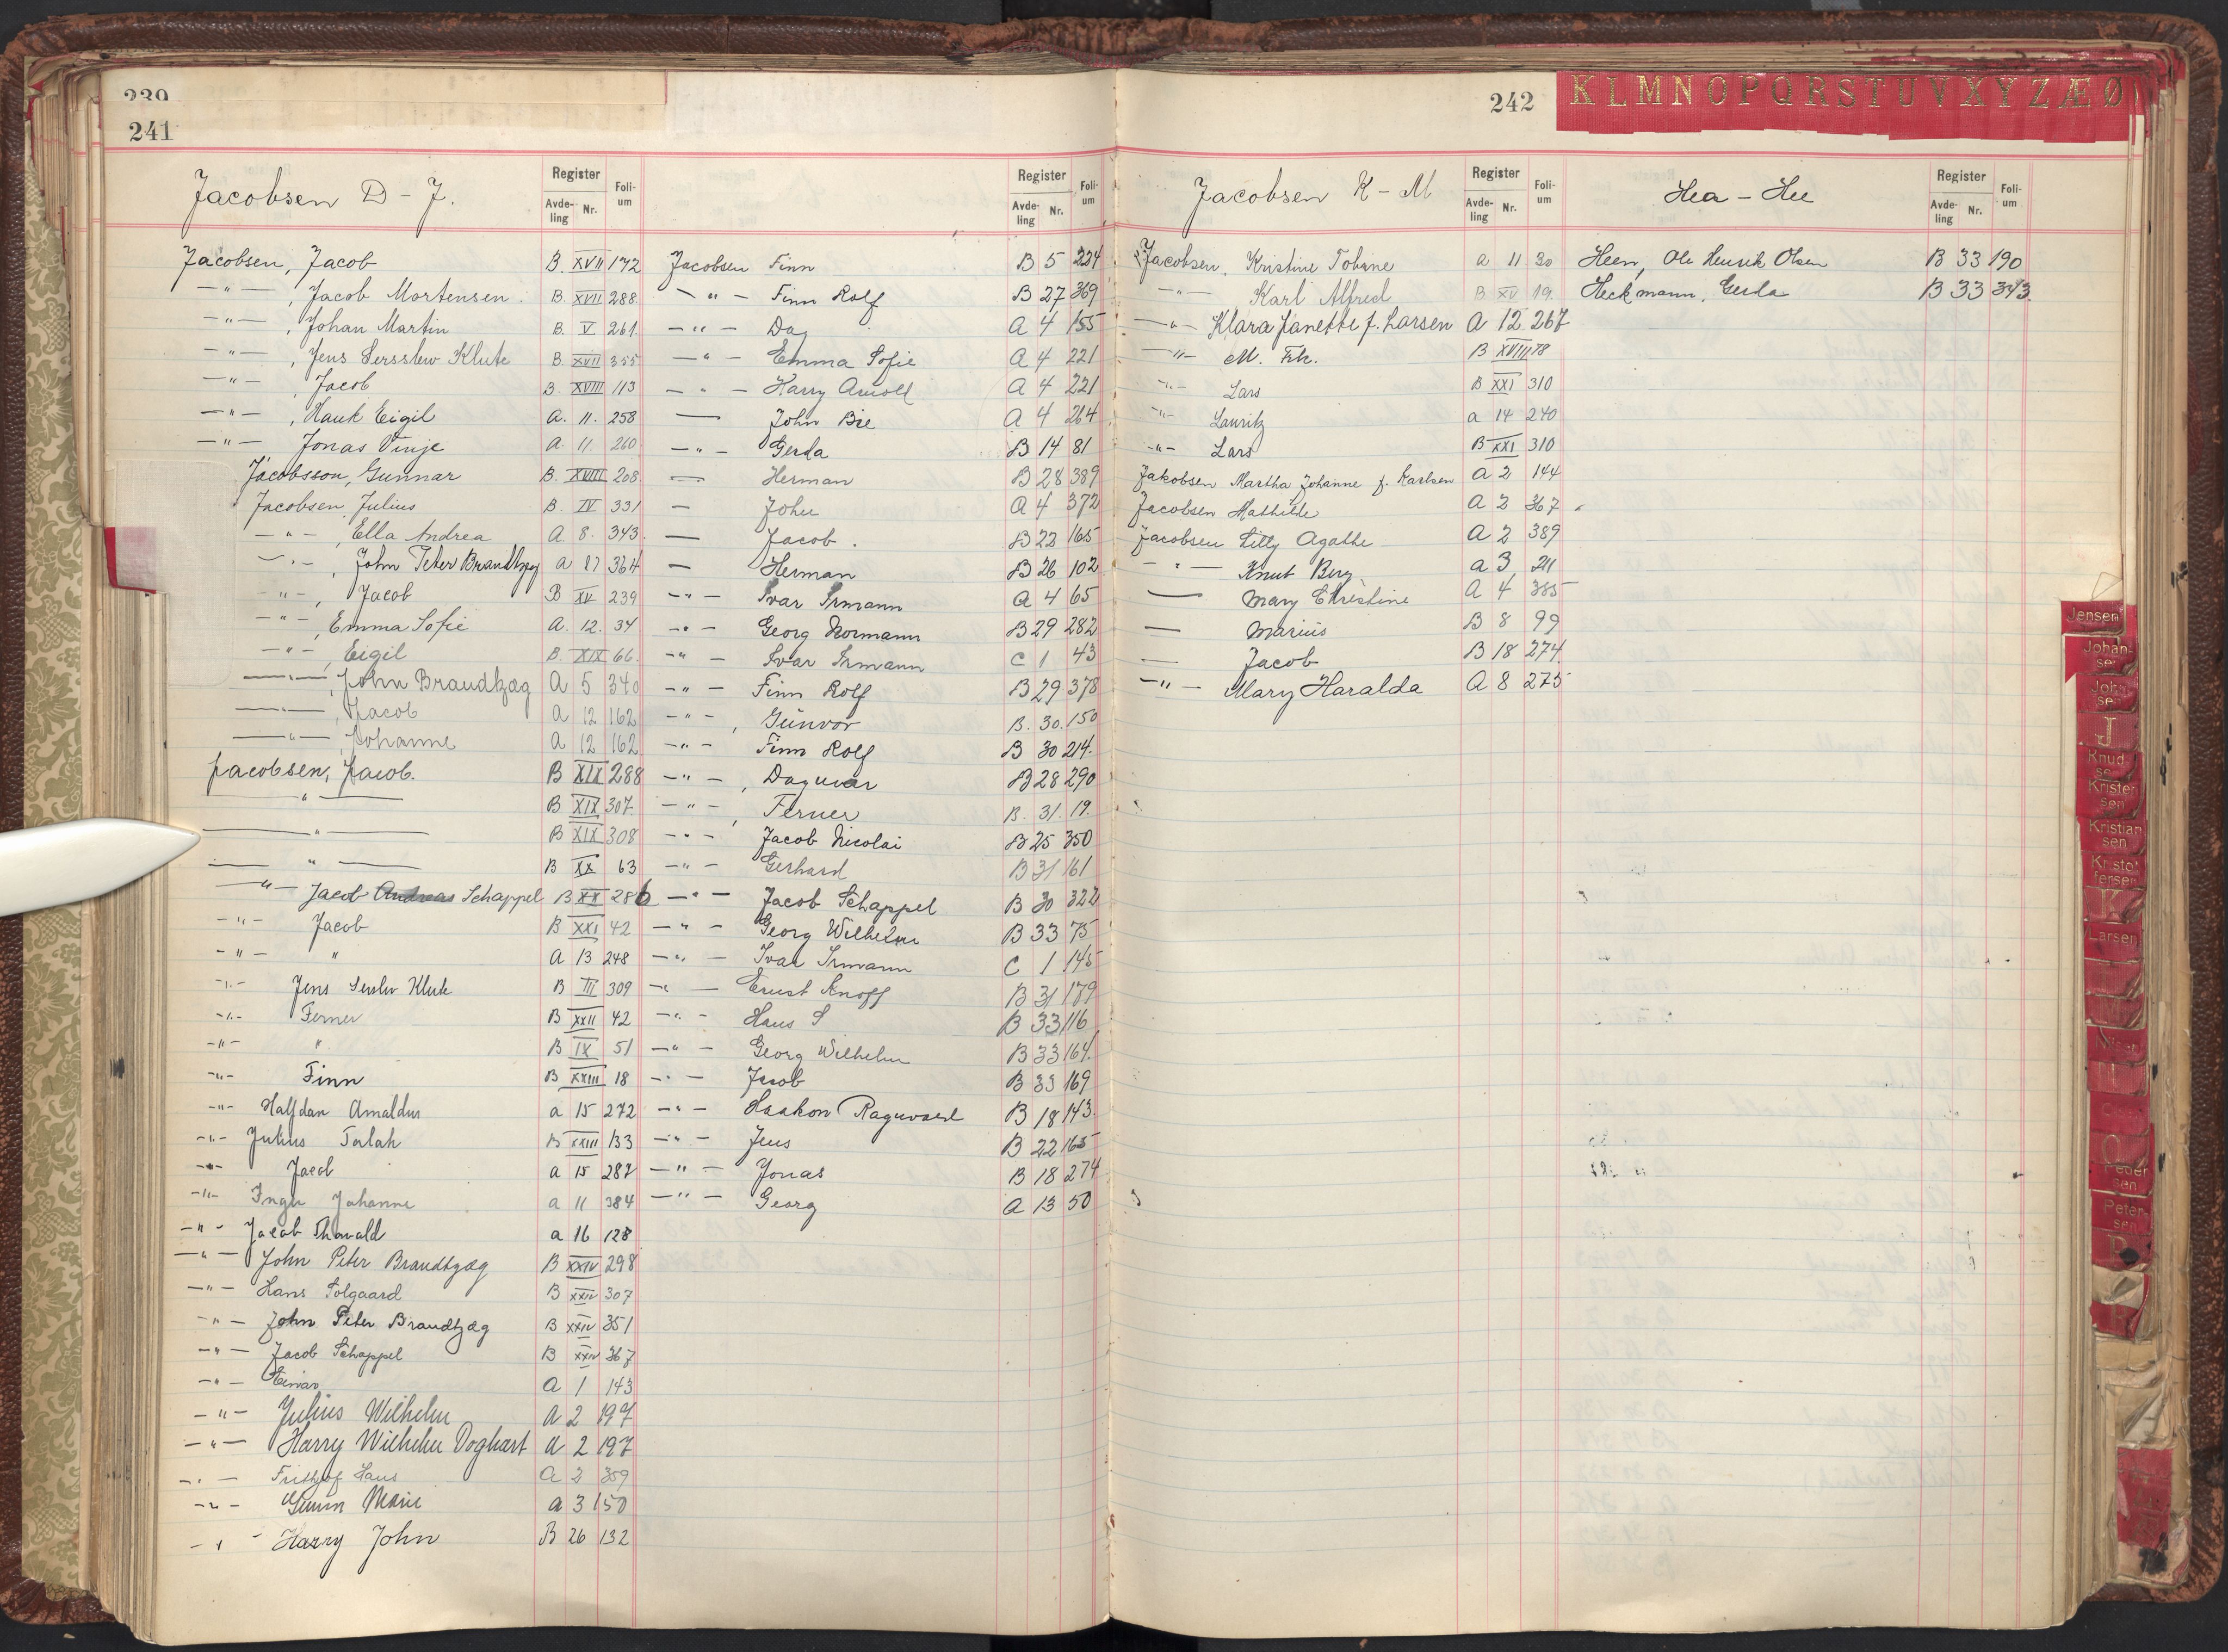 239
241
Jacobsen D - J.
Register Foli-um
Avde-ling Nr.
Jacobsen, Jacob B. XVII 172
-"- , Jacob Mortensen. B. XVII 288
-"- , Johan Martin B. V 261
-"- , Jens Klute B. XVII 355
-"- , Jacob B. XVIII 113
-"- , Hauk Eigil A. 11. 258
-"- Jonas Vinje A. 11. 260
Jacobsson, Gunnar B. XVIII 208
Jacobsen, Julius B. IV 331
-"- , Ella Andrea A 8. 343
-"- , John Peter Brandtzæg A 364
-"- , Jacob B XV 239
-"- , Emma Sofie A. 12. 34
-"- , Eigil B. XIX 66.
-"- , John Brandtzæg A 5 340
-"- , Jacob A 12 162
-"- , Johanne A 12 162
Jacobsen, Jacob. B XIX 288
-"- B XIX 307.
-"- B XIX 308
-"- B XX 63
-"- Jacob Andreas Schappel B XX 286
-"- Jacob B XXI 42
-"- " A 13 248
-"- Jens Klute B III 309
-"- Ferner B XXII 42
-"- " B IX 51
-"- Finn B XXIII 18
-"- Halfdan Arnaldus a 15 272
-"- Julius Talak B XXIII 133
-"- Jacob a 15 287
-"- Inger Johanne a 11 384
-"- Jacob Thorvald a 16 128
-"- John Peter Brandtzæg B XXIV 298
-"- Hans Solgaard B XXIV 307
-"- John Peter Brandtzæg B XXIV 351
-"- Jacob Schappel B XXIV 367
-"- Einar A 1 143
-"- Julius Wilhelm A 2 197
-"- Harry Wilhelm Doghart A 2 197
-"- Frithjof Hans A 2 359
-"- Gunn Marie a 3 150
-"- Harry John B 26 132
Register Foli-um
Avde-ling Nr.
Jacobsen Finn B 5 224
-"- Finn Rolf B 27 369
-"- Dag A 4 155
-"- Emma Sofie A 4 221
-"- Harry Arnold A 4 221
— John Bie A 4 264
-"- Gerda B 14 81
— Herman B 28 389
— John A 4 372
— Jacob. B 22 165
— Herman B 26 102
-"- Ivar Irmann A 4 65
-"- Georg Normann B 29 282
-"- Ivar Irmann C 1 43
-"- Finn Rolf B 29 378
-"- , Gunvor B. 30. 150
-"- Finn Rolf B 30 214.
-"- , Dagmar B 28 290
-"- , Ferner B. 31. 19.
-"- Jacob Nicolai B 25 350
-"- Gerhard B 31 161
-"- Jacob Schappel B 30 322
-"- Georg Wilhelm B 33 75
-"- Ivar Irmann C 1 145
-"- Ernst Knoff B 31 179
-"- Hans S B 33 116
-"- Georg Wilhelm B 33 164.
-"- Jacob B 33 169
-"- Haakon Ragnvald B 18 143.
-"- Jens B 22 165
-"- Jonas B 18 274
-"- Georg A 13 50
242
K L M N O P Q R S T U V X Y Z Æ Ø
Jacobsen K - M
Register Foli-um
Avde-ling Nr.
Jacobsen, Kristine Tobine a 11 30
-"- Karl Alfred B XV 19.
-"- Klara Janette f. Larsen A 12 267
-"- M. Frk. B XVIII 78
-"- Lars B XXI 310
-"- Lauritz a 14 240
-"- Lars B XXI 310
Jakobsen Martha Johanne f. Karlsen A 2 144
Jacobsen Mathilde A 2 367
Jacobsen Lilly Agathe A 2 389
-"- Knut Berg a 3 211
— Mary Christine A 4 385
— Marius B 8 99
— Jacob B 18 274.
-"- Mary Haralda A 8 275
Hea - Hee
Register Foli-um
Avde-ling Nr.
Heen, Ole Henrik Olsen B 33 190
Heckmann, Gerda B 33 343.
Jensen
Johan-sen
John-sen
J
Knud-sen
Kristen-sen
Kristian-sen
Kristof-fersen
K
Larsen
O
Peder-sen
Peter-sen
P
R